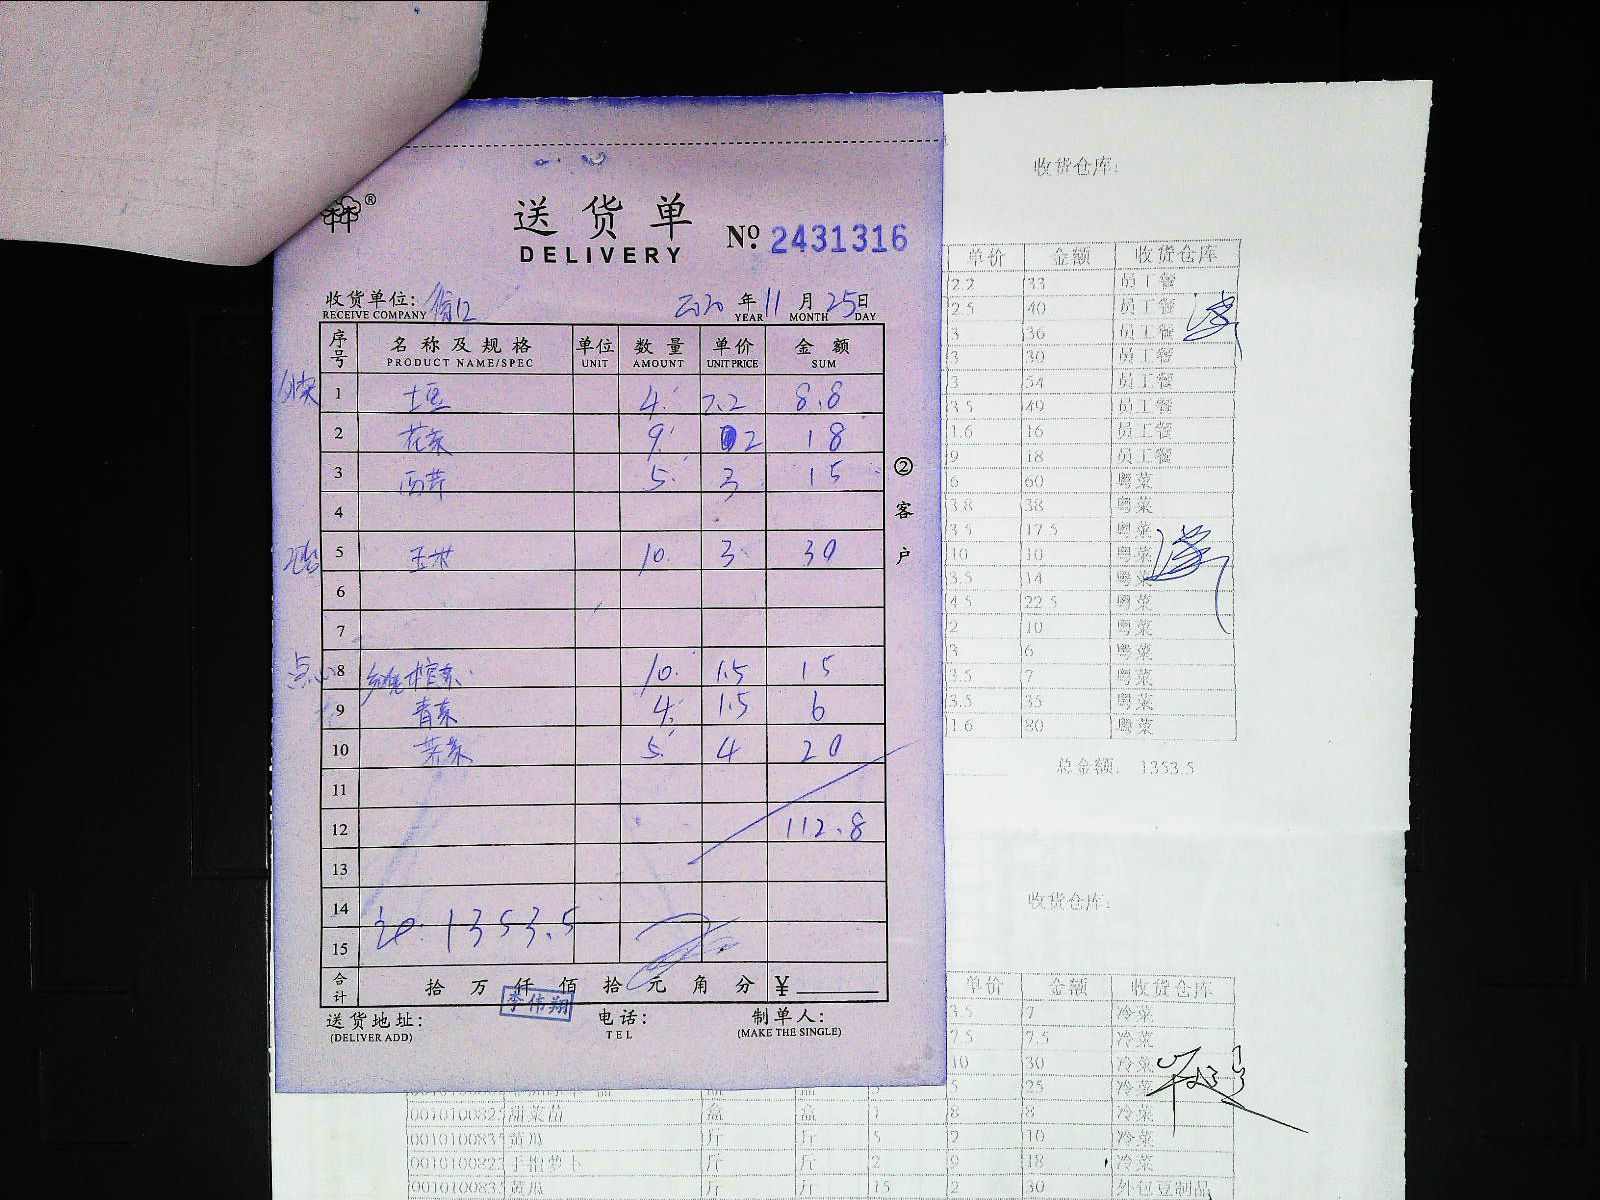 收货仓库:
送货单
DELIVERY
№ 2431316
收货单位:
RECEIVE COMPANY
2020 年 11 月 25 日
YEAR MONTH DAY
序号 名称及规格 单位 数量 单价 金额
PRODUCT NAME/SPEC UNIT AMOUNT UNIT PRICE SUM
1 土豆 4 2.2 8.8
2 花菜 9 2 18
3 西芹 5 3 15
4
5 玉米 10 3 30
6
7
点心 8 10 1.5 15
9 青菜 4 1.5 6
10 5 4 20
11
12 112.8
13
14
15 1353.5
合计 拾 万 仟 佰 拾 元 角 分 ¥
李伟翔
送货地址: 电话: 制单人:
(DELIVER ADD) TEL (MAKE THE SINGLE)
② 客户
单价 金额 收货仓库
2.2 33 员工餐
2.5 40 员工餐
3 36 员工餐
3 30 员工餐
3 54 员工餐
3.5 49 员工餐
1.6 16 员工餐
9 18 员工餐
6 60 粤菜
3.8 38 粤菜
3.5 17.5 粤菜
10 10 粤菜
3.5 14 粤菜
4.5 22.5 粤菜
2 10 粤菜
3 6 粤菜
3.5 7 粤菜
3.5 35 粤菜
1.6 80 粤菜
总金额: 1353.5
收货仓库:
单价 金额 收货仓库
3.5 7 冷菜
7.5 7.5 冷菜
10 30 冷菜
5 25 冷菜
0010100825 盒 盒 1 8 8 冷菜
0010100835 黄瓜 斤 斤 5 2 10 冷菜
0010100823 手指萝卜 斤 斤 2 9 18 冷菜
0010100835 黄瓜 斤 斤 15 2 30 外包豆制品